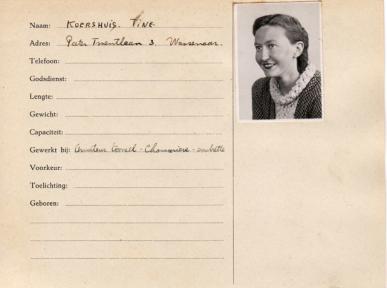 Naam: KOERSHUIS. TINE
Adres: 3. Wassenaar.
Telefoon:
Godsdienst:
Lengte:
Gewicht:
Capaciteit:
Gewerkt bij: Amateur - Chansonière -
Voorkeur:
Toelichting:
Geboren: